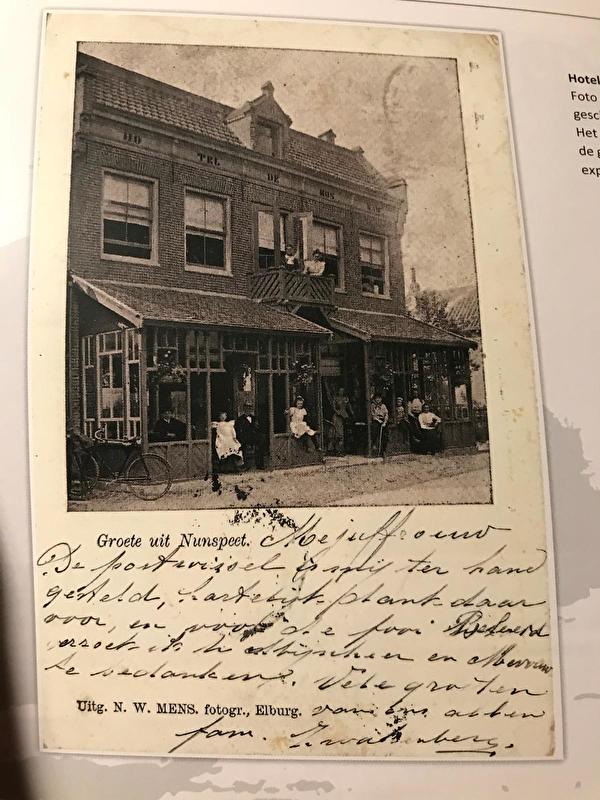 HOTEL DE MON
Groete uit Nunspeet. Mejuffrouw
De postwissel is mij ter hand
gesteld, hartelijk dank daar
voor, en voor de fooi Beleefd
verzoek ik U Mijnheer en Mevrouw
te bedanken. Vele groeten
Uitg. N. W. MENS. fotogr., Elburg. van ons allen
fam. Zwanenberg.
Hotel
Foto
gesc
Het
de g
exp